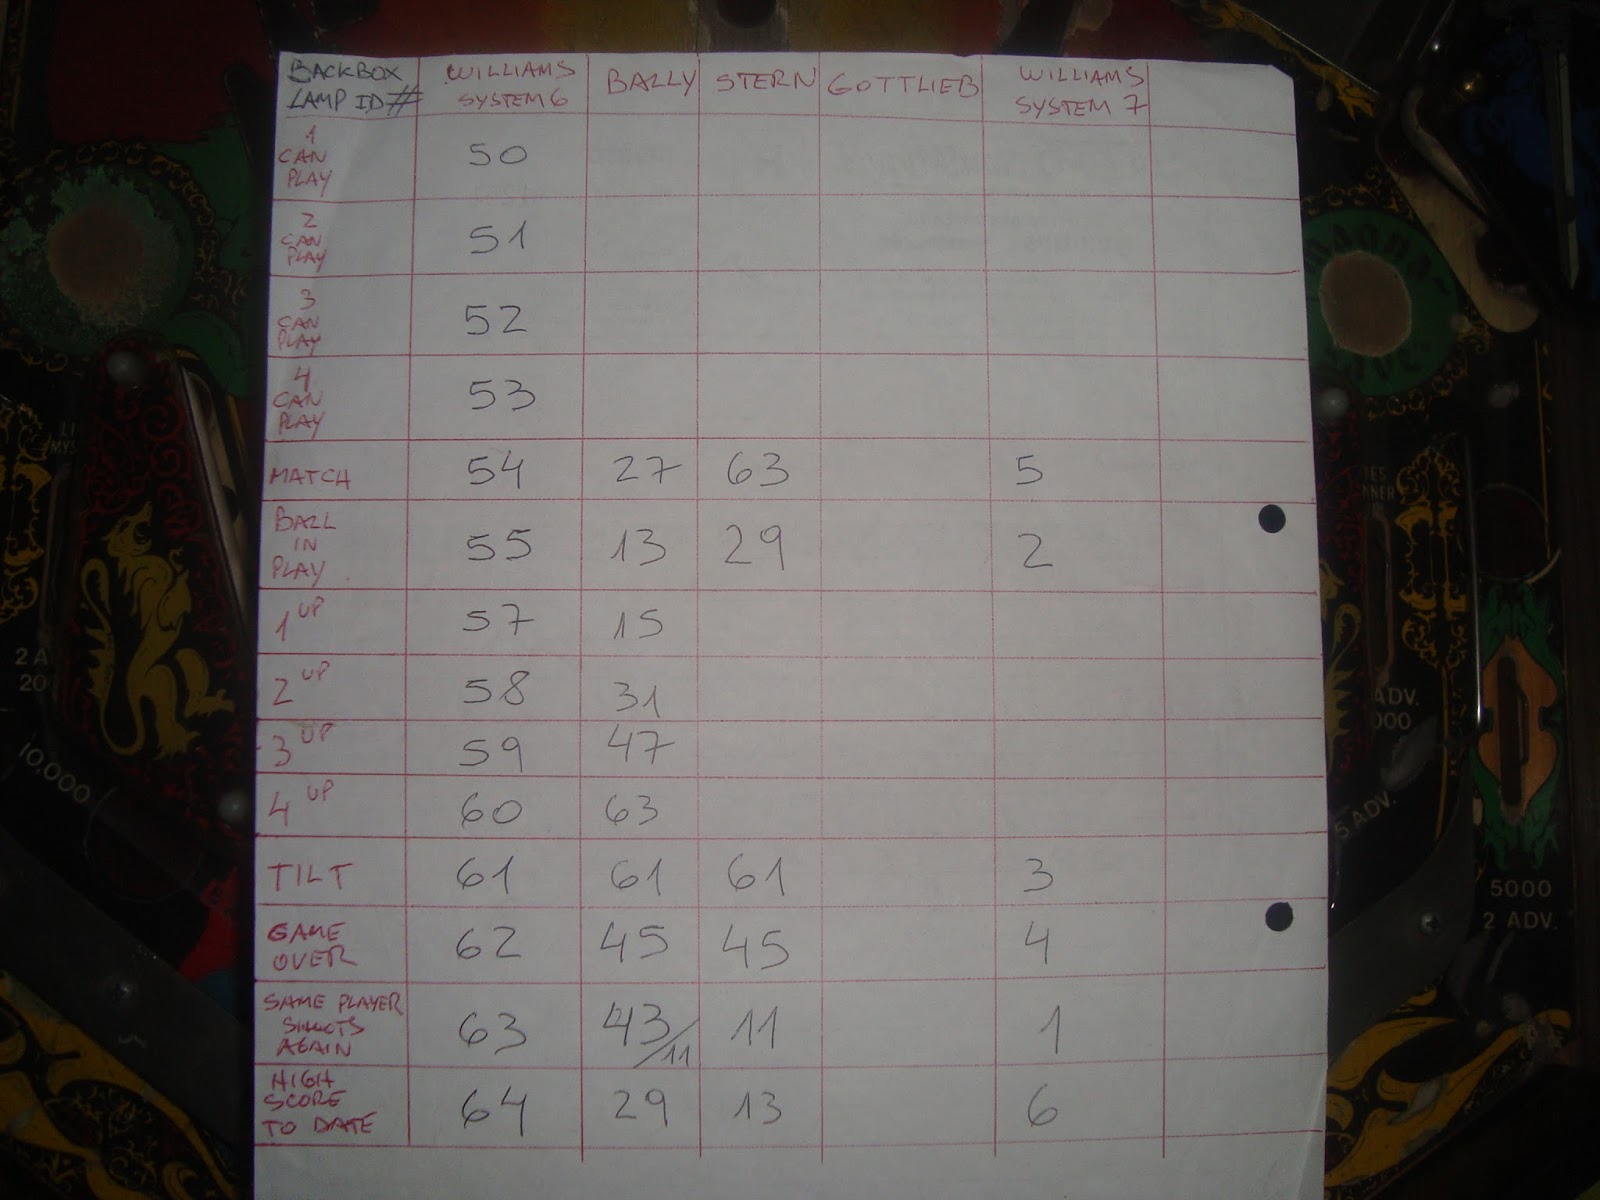 BACKBOX
LAMP ID #
WILLIAMS
SYSTEM 6
BALLY
STERN
GOTTLIEB
WILLIAMS
SYSTEM 7
1
CAN
PLAY
50
2
CAN
PLAY
51
3
CAN
PLAY
52
4
CAN
PLAY
53
MATCH 54 27 63 5
BALL
IN
PLAY
55 13 29 2
1 UP 57 15
2 UP 58 31
3 UP 59 47
4 UP 60 63
TILT 61 61 61 3
GAME
OVER
62 45 45 4
SAME PLAYER
SHOOTS
AGAIN
63 43/11 11 1
HIGH
SCORE
TO DATE
64 29 13 6
2 A
20
10,000
ADV.
000
5 ADV.
5000
2 ADV.